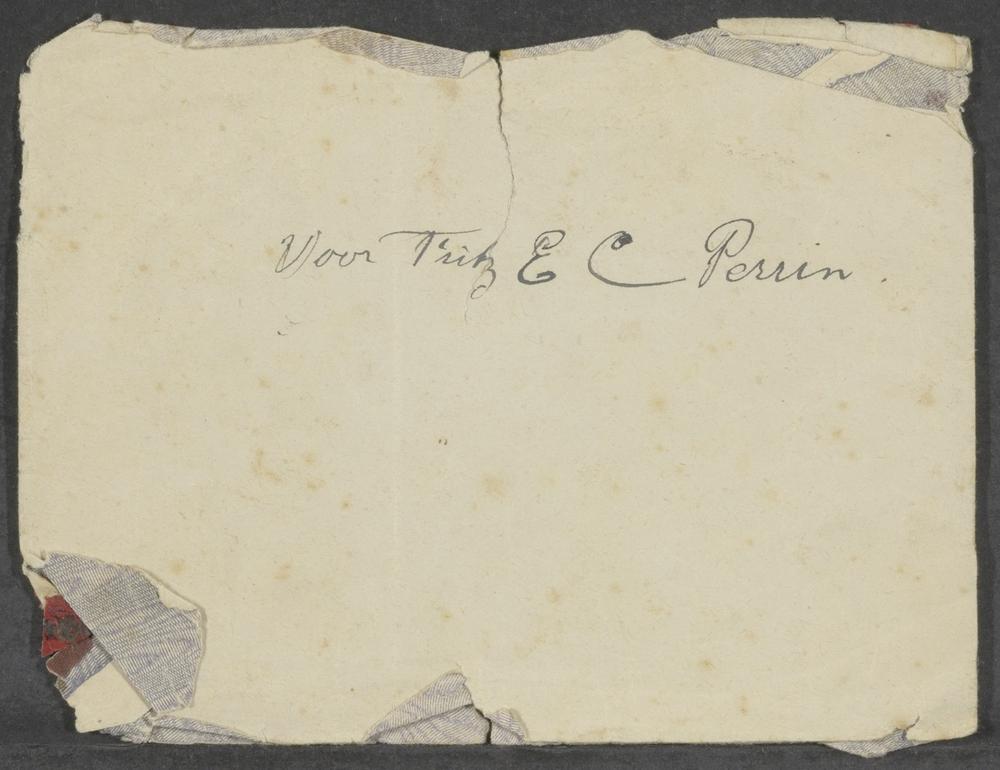 Voor Fritz E C Perrin.